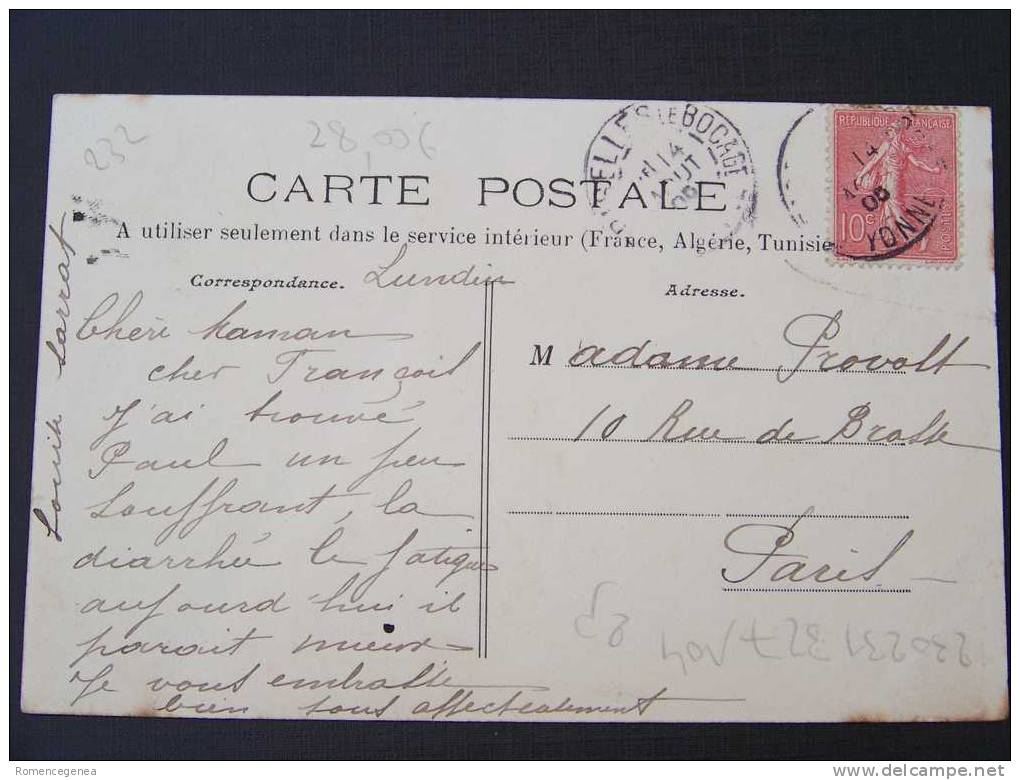 232
28,00€
CARTE POSTALE
A utiliser seulement dans le service intérieur (France, Algérie, Tunisie
Correspondance.
Lundi
Chère Maman
cher François
J'ai trouvé
Paul un peu
souffrant, la
diarrhée le fatigue
aujourd'hui il
parait mieux
Je vous embrasse
bien tous affectueusement
Louise Sarrat
Adresse.
Madame Provost
10 Rue de Brosse
Paris
ELLES LE BOCAGE
14
AOUT
06
REPUBLIQUE FRANÇAISE
10c
POSTES
14
06
YONNE
Romencegenea